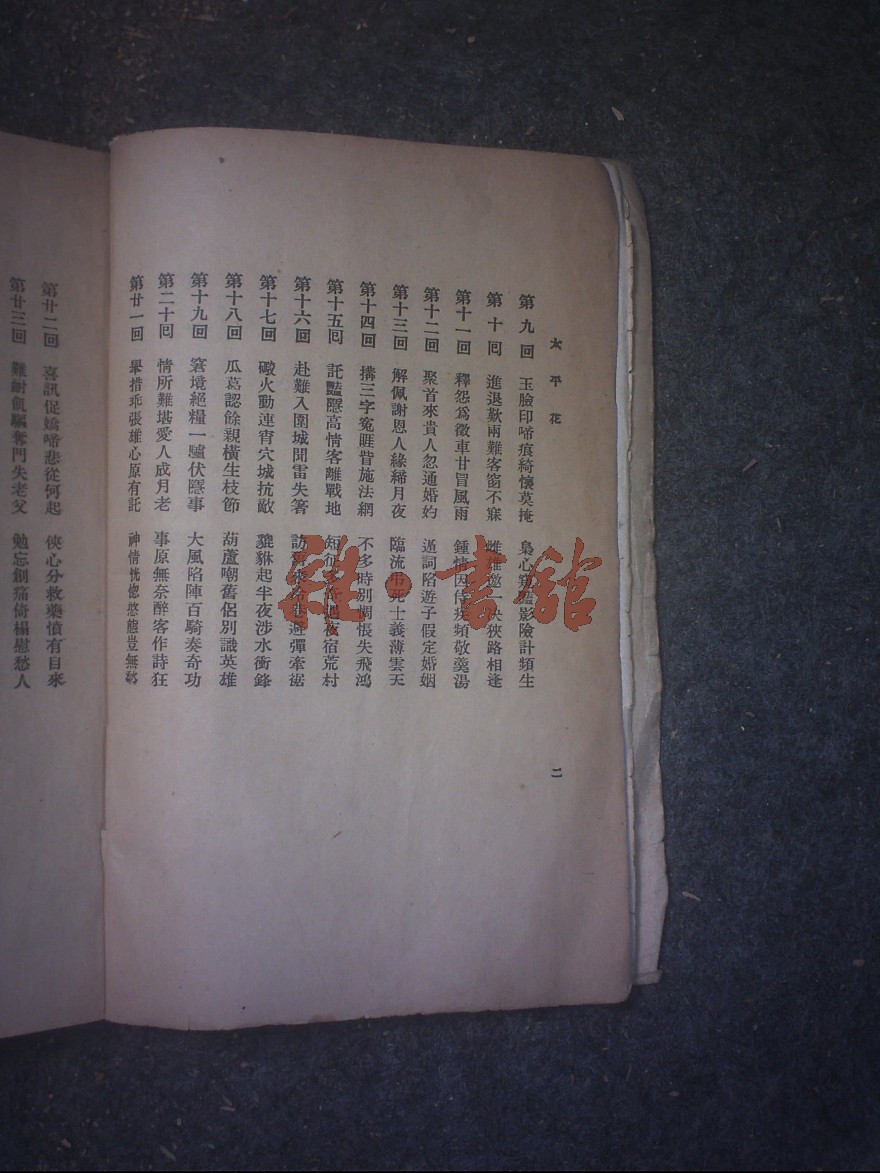 太平花
第九回 玉臉印啼痕綺懷莫掩 梟心窺豔影險計頻生
第十回 進退歎兩難客窗不寐 雌雄邀一決狹路相逢
第十一回 釋怨爲徵車甘冒風雨 鍾情因侍疾頻敬羹湯
第十二回 聚首來貴人忽通婚妁 遁詞陷遊子假定婚姻
第十三回 解佩謝恩人緣締月夜 臨流弔死士義薄雲天
第十四回 搆三字冤睚眥施法網 不多時別惆悵失飛鴻
第十五回 託豔隱高情客離戰地 知征夜宿荒村
第十六回 赴難入圍城聞雷失箸 訪彈牽裾
第十七回 礮火動連宵穴城抗敵 貔貅起半夜涉水衝鋒
第十八回 瓜葛認餘親橫生枝節 葫蘆嘲舊侶別識英雄
第十九回 窘境絕糧一驢伏隱事 大風陷陣百騎奏奇功
第二十回 情所難堪愛人成月老 事原無奈醉客作詩狂
第廿一回 舉措乖張雄心原有託 神情恍惚悠態豈無愁
二
第廿二回 喜訊促嬌啼悲從何起 俠心分救藥憤有自來
第廿三回 難耐飢驅奪門失老父 勉忘創痛倚榻慰愁人
雜·書館